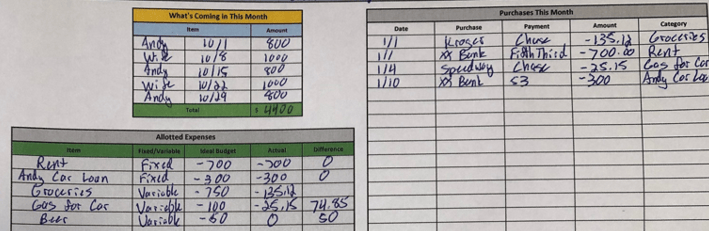 What's Coming in This Month
Item Amount
Andy 10/1 800
Wife 10/8 1000
Andy 10/15 800
Wife 10/22 1000
Andy 10/29 800
Total $ 4400
Allotted Expenses
Item Fixed/Variable Ideal Budget Actual Difference
Rent Fixed -700 -700 0
Andy Car Loan Fixed -300 -300 0
Groceries Variable -750 -135.12
Gas for Car Variable -100 -25.15 74.85
Beer Variable -50 0 50
Purchases This Month
Date Purchase Payment Amount Category
1/1 Kroger Chase -135.12 Groceries
1/1 XX Bank Fifth Third -700.00 Rent
1/4 Speedway Chase -25.15 Gas for Car
1/10 XX Bank 53 -300 Andy Car Loa